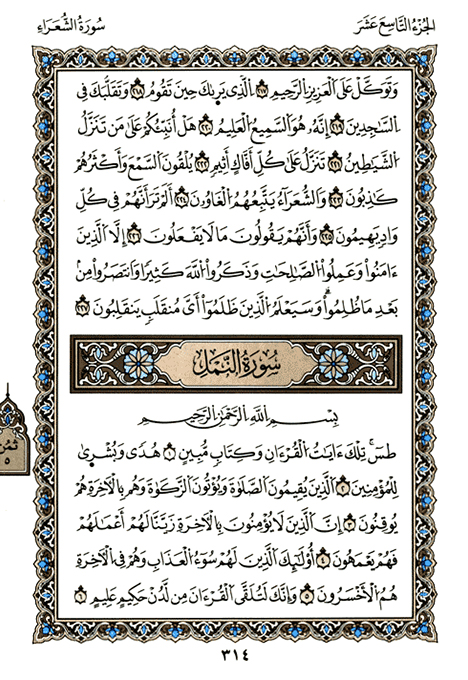 الجُزْءُ التَّاسِعَ عَشَرَ
سُورَةُ الشُّعَرَاءِ
وَتَوَكَّلْ عَلَى الْعَزِيزِ الرَّحِيمِ ٢١٧ الَّذِي يَرَىٰكَ حِينَ تَقُومُ ٢١٨ وَتَقَلُّبَكَ فِي
السَّٰجِدِينَ ٢١٩ إِنَّهُۥ هُوَ السَّمِيعُ الْعَلِيمُ ٢٢٠ هَلْ أُنَبِّئُكُمْ عَلَىٰ مَن تَنَزَّلُ
الشَّيَٰطِينُ ٢٢١ تَنَزَّلُ عَلَىٰ كُلِّ أَفَّاكٍ أَثِيمٍ ٢٢٢ يُلْقُونَ السَّمْعَ وَأَكْثَرُهُمْ
كَٰذِبُونَ ٢٢٣ وَالشُّعَرَآءُ يَتَّبِعُهُمُ الْغَاوُونَ ٢٢٤ أَلَمْ تَرَ أَنَّهُمْ فِي كُلِّ
وَادٍ يَهِيمُونَ ٢٢٥ وَأَنَّهُمْ يَقُولُونَ مَا لَا يَفْعَلُونَ ٢٢٦ إِلَّا الَّذِينَ
ءَامَنُوا۟ وَعَمِلُوا۟ الصَّٰلِحَٰتِ وَذَكَرُوا۟ اللَّهَ كَثِيرًا وَانتَصَرُوا۟ مِنۢ
بَعْدِ مَا ظُلِمُوا۟ ۗ وَسَيَعْلَمُ الَّذِينَ ظَلَمُوٓا۟ أَيَّ مُنقَلَبٍ يَنقَلِبُونَ ٢٢٧
سُورَةُ النَّمْلِ
بِسْمِ اللَّهِ الرَّحْمَٰنِ الرَّحِيمِ
طسٓ ۚ تِلْكَ ءَايَٰتُ الْقُرْءَانِ وَكِتَابٍ مُّبِينٍ ١ هُدًى وَبُشْرَىٰ
لِلْمُؤْمِنِينَ ٢ الَّذِينَ يُقِيمُونَ الصَّلَوٰةَ وَيُؤْتُونَ الزَّكَوٰةَ وَهُم بِالْءَاخِرَةِ هُمْ
يُوقِنُونَ ٣ إِنَّ الَّذِينَ لَا يُؤْمِنُونَ بِالْءَاخِرَةِ زَيَّنَّا لَهُمْ أَعْمَٰلَهُمْ
فَهُمْ يَعْمَهُونَ ٤ أُو۟لَٰٓئِكَ الَّذِينَ لَهُمْ سُوٓءُ الْعَذَابِ وَهُمْ فِي الْءَاخِرَةِ
هُمُ الْأَخْسَرُونَ ٥ وَإِنَّكَ لَتُلَقَّى الْقُرْءَانَ مِن لَّدُنْ حَكِيمٍ عَلِيمٍ ٦
ثُمُن
٥
٣١٤